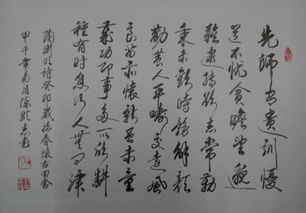 先師有遺訓憂
道不憂貧瞻望邈
難逮轉欲志常勤
秉耒歡時務解顏
勸農人平疇交遠風
良苗亦懷新雖未量
歲功即事多所欣耕
種有時息行人無問津
陶淵明詩癸卯歲始春懷古田舍
甲午年菊月陳書